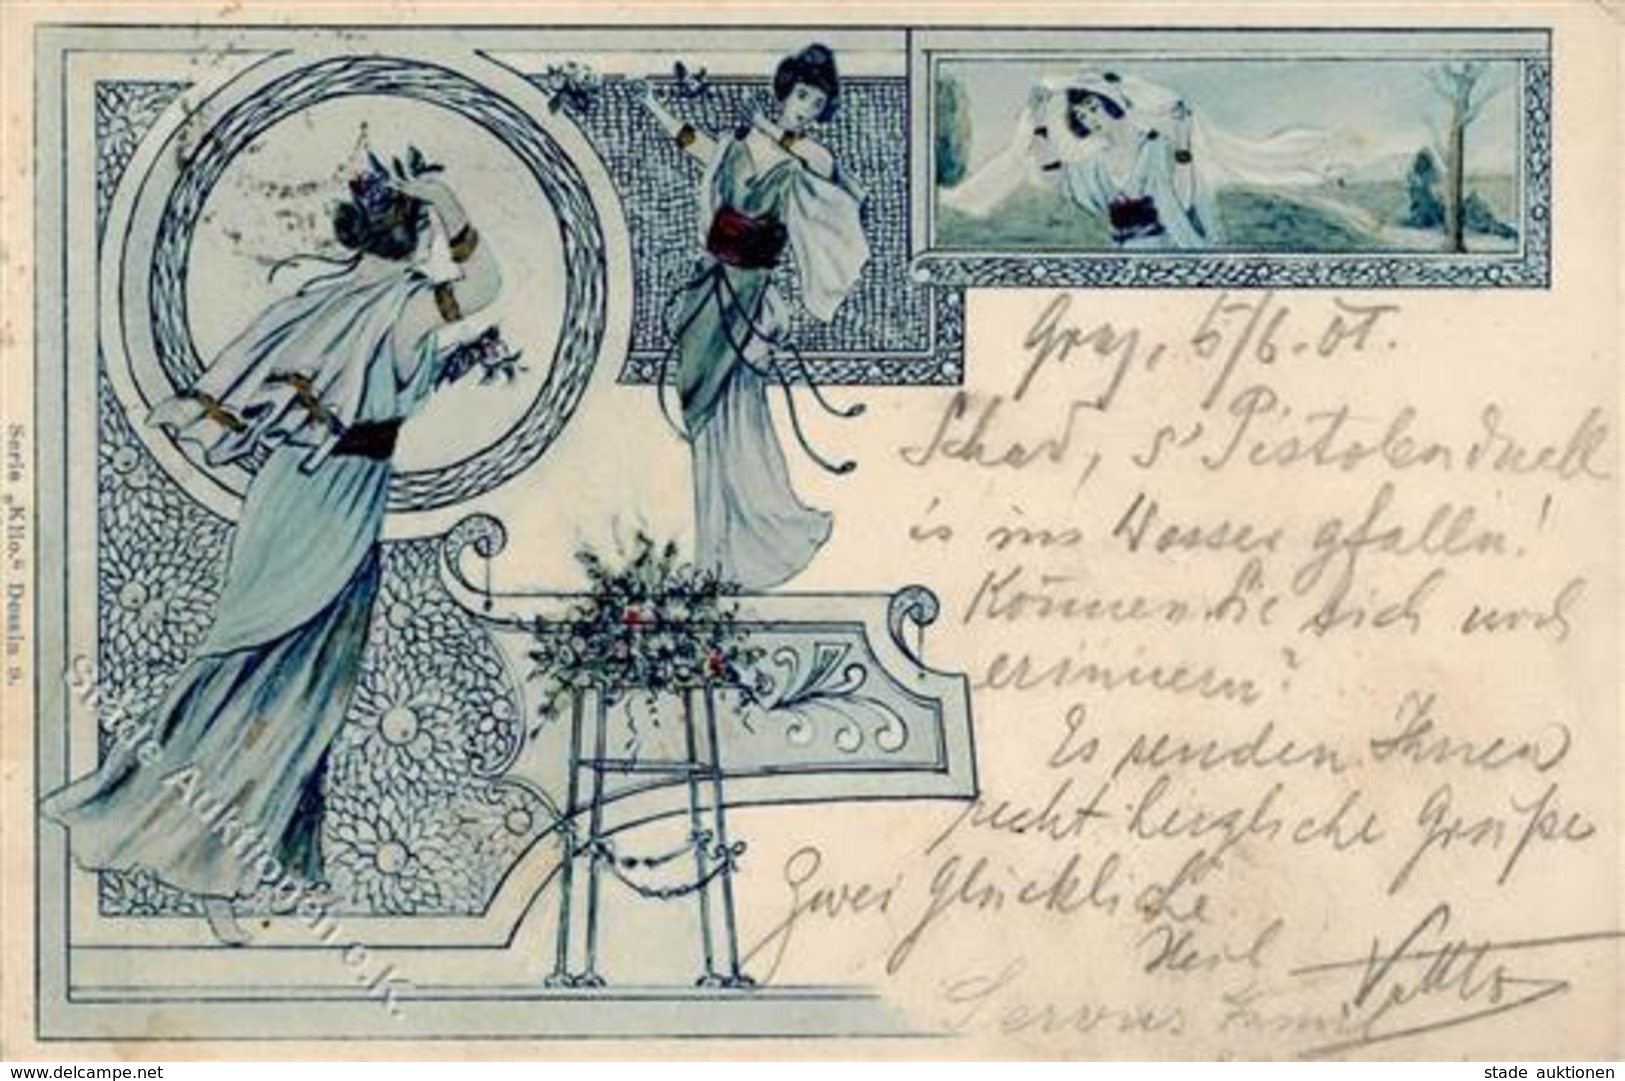 Graz, 5/6. 01.
Schad, s' Pistolenduell
is ins Wasser gfallen!
Können Sie sich noch
erinnern?
Es senden Ihnen
recht herzliche Grüße
Zwei Glückliche.
Heil
Servus
Serie „Klio." Dessin 9.
Stade Auktionen e.K.
www.delcampe.net
stade auktionen